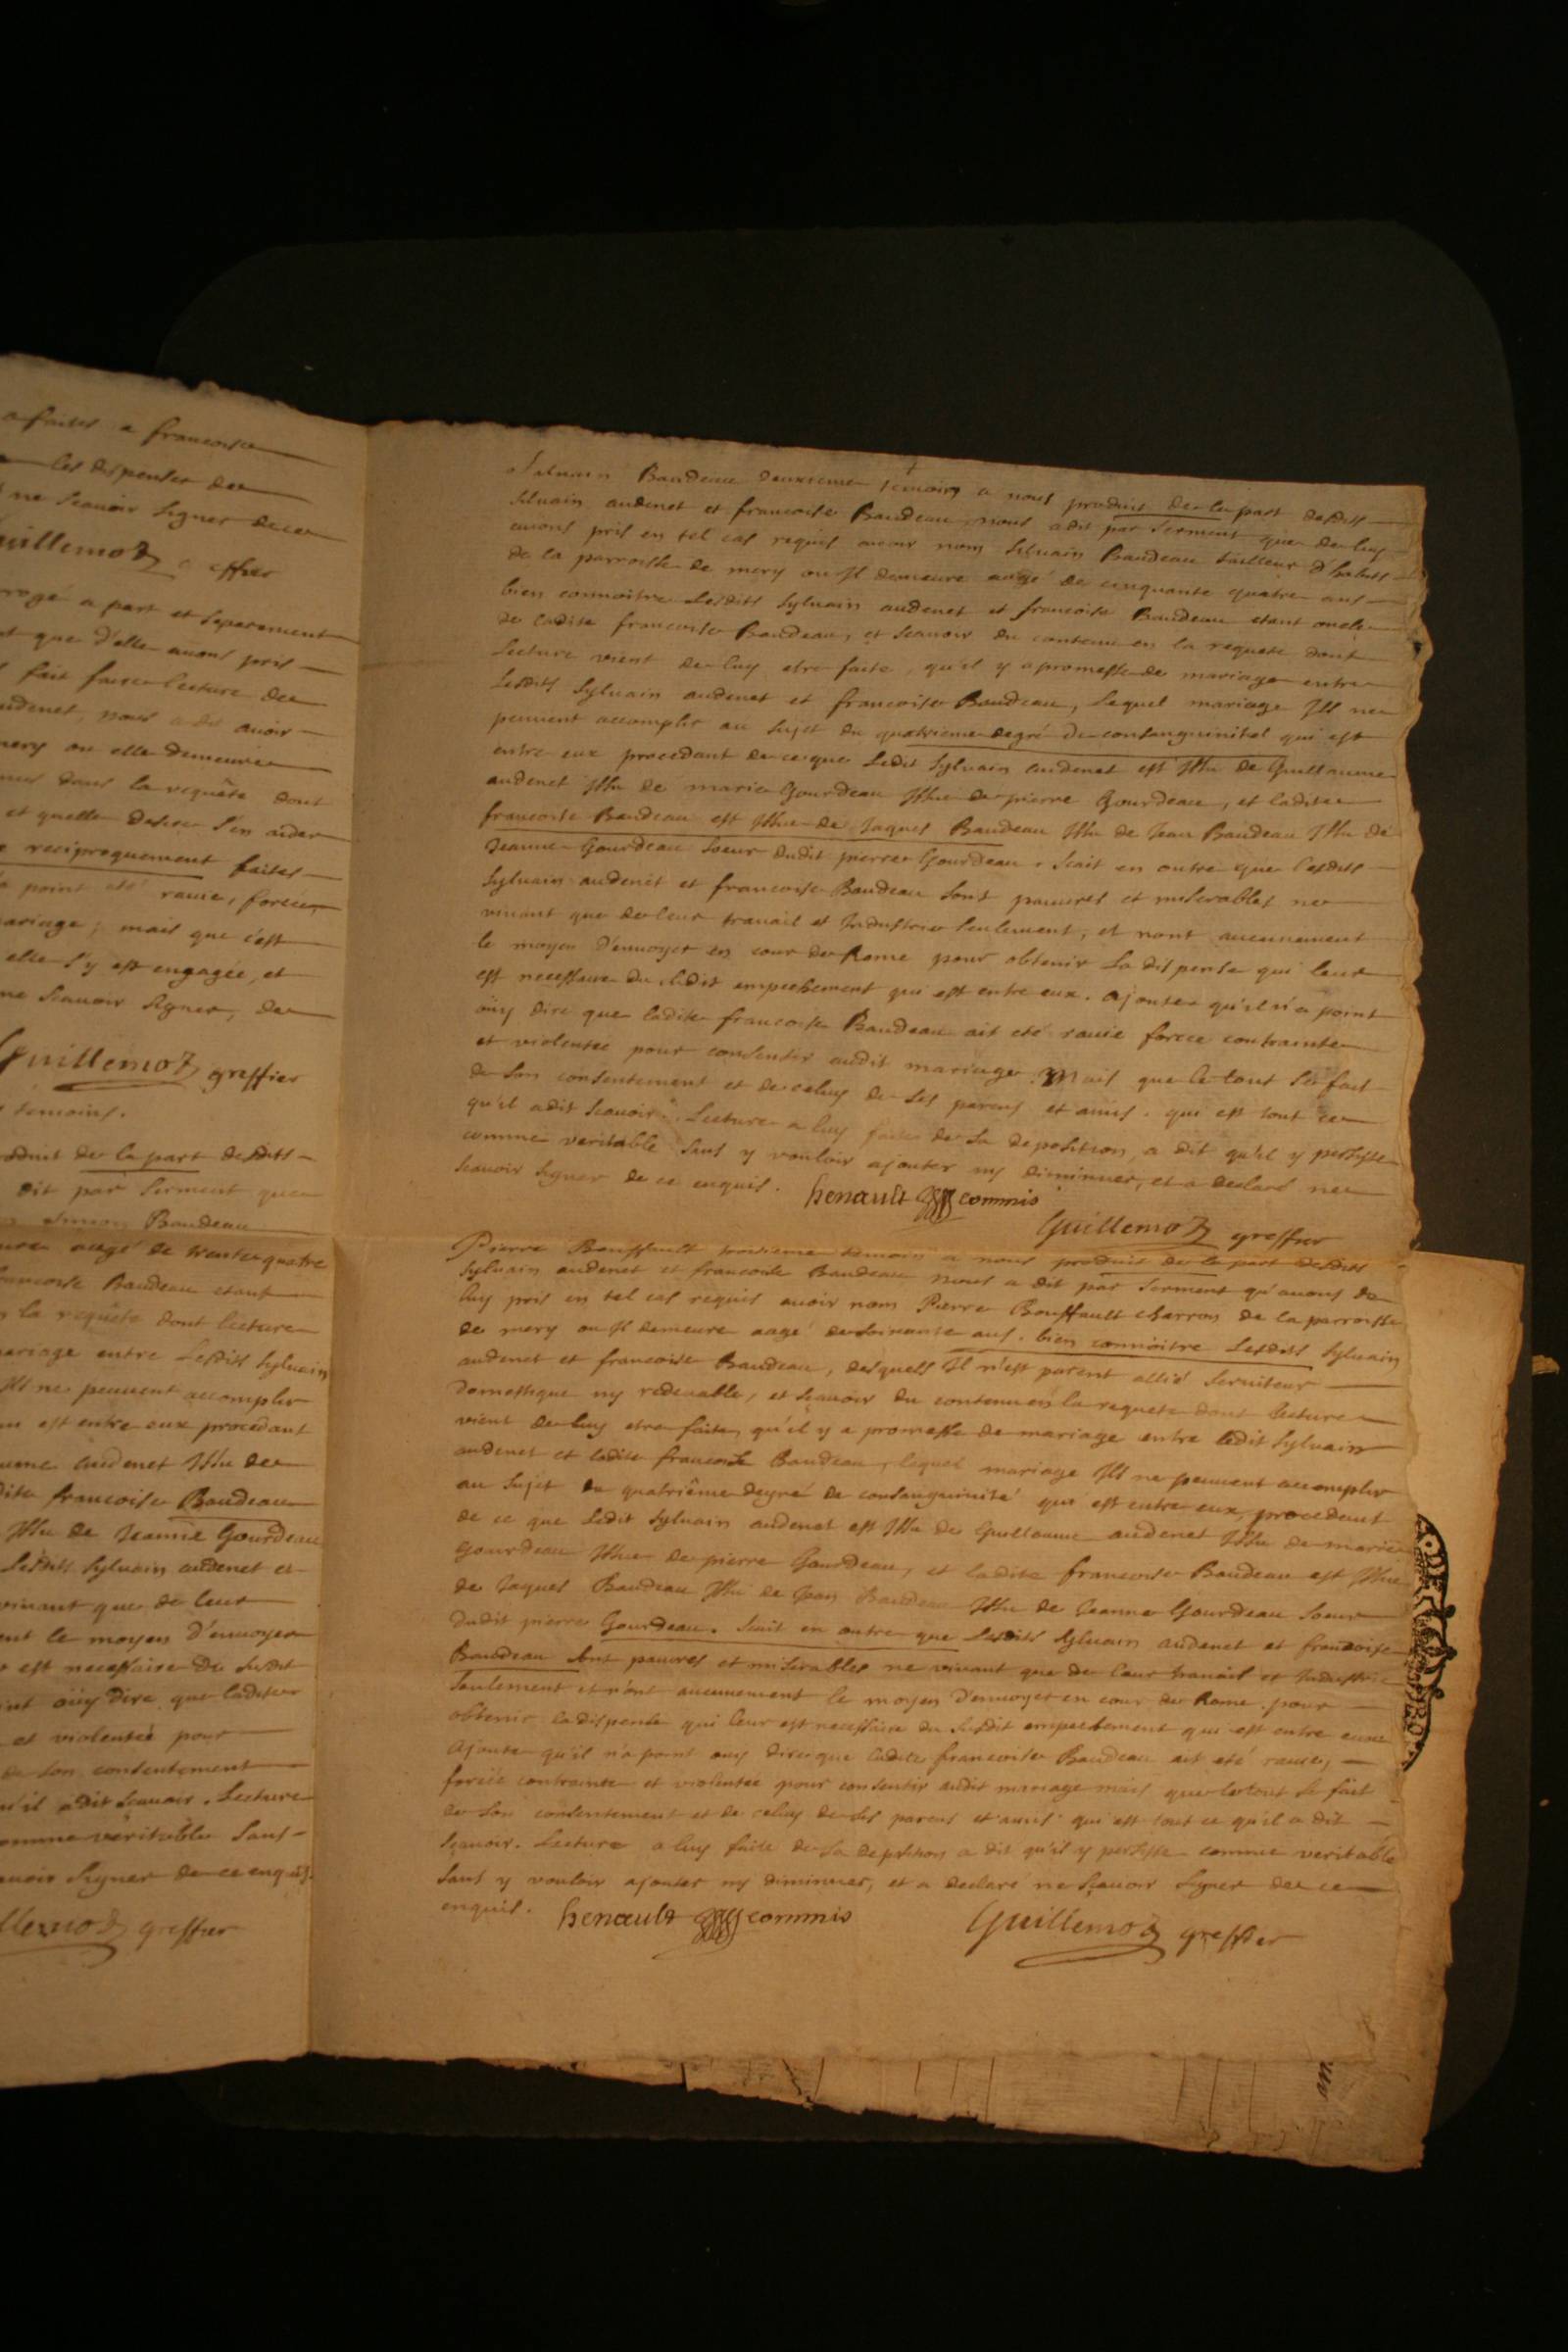 a faites a francoise
les dispenses de
ne scauoir signer de ce
Guillemot greffier
rogé a part et separement
que d'elle auons pris
fait faire lecture de
audenet, nous a dit auoir
mery ou elle demeure
dans la requête dont
et quelle desire s'en aider
reciproquement faites
point eté rauie, forcée,
mariage; mais que c'est
elle s'y est engagée, et
ne scauoir signer, de
Guillemot greffier
temoins.
produit de la part desdits
dit par serment que
simon Baudeau
aagé de trente quatre
francoise Baudeau etant
la requête dont lecture
mariage entre lesdits sylvain
Ils ne peuuent accomplir
est entre eux procedant
audenet Issu de
francoise Baudeau
Issu de Jeanne Gourdeau
lesdits sylvain audenet et
viuant que de leur
le moyen d'enuoyer
est necessaire du susdit
oüy dire que ladite
et violentée pour
de son consentement
qu'il a dit scauoir. Lecture
comme veritable sans
scauoir signer de ce enquis.
Guillemot greffier
Siluain Baudeau deuxieme temoing a nous produit de la part desdits
siluain audenet et francoise Baudeau, nous a dit par serment que de luy
auons pris en tel cas requis auoir nom siluain Baudeau tailleur d'habits
de la parroisse de mery ou Il demeure aagé de cinquante quatre ans
bien connoitre lesdits sylvain audenet et francoise Baudeau etant oncle
de ladite francoise Baudeau, et scauoir du contenu en la requete dont
lecture vient de luy etre faite, qu'il y a promesse de mariage entre
lesdits sylvain audenet et francoise Baudeau, lequel mariage Ils ne
peuuent accomplir au sujet du quatrieme degré de consanguinité qui est
entre eux procedant de ce que ledit sylvain audenet est Issu de Guillaume
audenet Issu de marie Gourdeau Issue de pierre Gourdeau, et ladite
francoise Baudeau est Issue de Jaques Baudeau Issu de Jean Baudeau Issu de
Jeanne Gourdeau soeur dudit pierre Gourdeau. scait en outre que lesdits
sylvain audenet et francoise Baudeau sont pauures et miserables ne
viuant que de leur trauail et Industrie seulement, et n'ont aucunement
le moyen d'enuoyer en cour de Rome pour obtenir la dispense qui leur
est necessaire du susdit empechement qui est entre eux. ajoute qu'il n'a point
oüy dire que ladite francoise Baudeau ait eté rauie forcée contrainte
et violentée pour consentir audit mariage. Mais que le tout se fait
de son consentement et de celuy de ses parens et amis. qui est tout ce
qu'il a dit scauoir. Lecture a luy faite de sa deposition, a dit qu'il y persiste
comme veritable sans y vouloir ajouter ny diminuer, et a declaré ne
scauoir signer de ce enquis. henault commis
Guillemot greffier
Pierre Bouffault troisieme temoin a nous produit de la part desdits
sylvain audenet et francoise Baudeau nous a dit par serment qu'auons de
luy pris en tel cas requis auoir nom Pierre Bouffault charron de la parroisse
de mery ou Il demeure aagé de soixante ans. bien connoitre lesdits sylvain
audenet et francoise Baudeau, desquels Il n'est parent allié seruiteur
domestique ny redeuable, et scauoir du contenu en la requete dont lecture
vient de luy etre faite, qu'il y a promesse de mariage entre ledit sylvain
audenet et ladite francoise Baudeau, lequel mariage Ils ne peuuent accomplir
au sujet du quatriême degré de consanguinité qui est entre eux, procedant
de ce que ledit sylvain audenet est Issu de Guillaume audenet Issu de marie
Gourdeau Issue de pierre Gourdeau, et ladite francoise Baudeau est Issue
de Jaques Baudeau Issu de Jean Baudeau Issu de Jeanne Gourdeau soeur
dudit pierre Gourdeau. scait en outre que lesdits sylvain audenet et francoise
Baudeau sont pauures et miserables ne viuant que de leur trauail et Industrie
seulement et n'ont aucunement le moyen d'enuoyer en cour de Rome pour
obtenir la dispense qui leur est necessaire du susdit empechement qui est entre eux
ajoute qu'il n'a point ouy dire que ladite francoise Baudeau ait eté rauie,
forcée contrainte et violentée pour consentir audit mariage mais que le tout se fait
de son consentement et de celuy de ses parens et amis qui est tout ce qu'il a dit
scauoir. Lecture a luy faite de sa deposition a dit qu'il y persiste comme veritable
sans y vouloir ajouter ny diminuer, et a declaré ne scauoir signer de ce
enquis. henault commis Guillemot greffier
DE